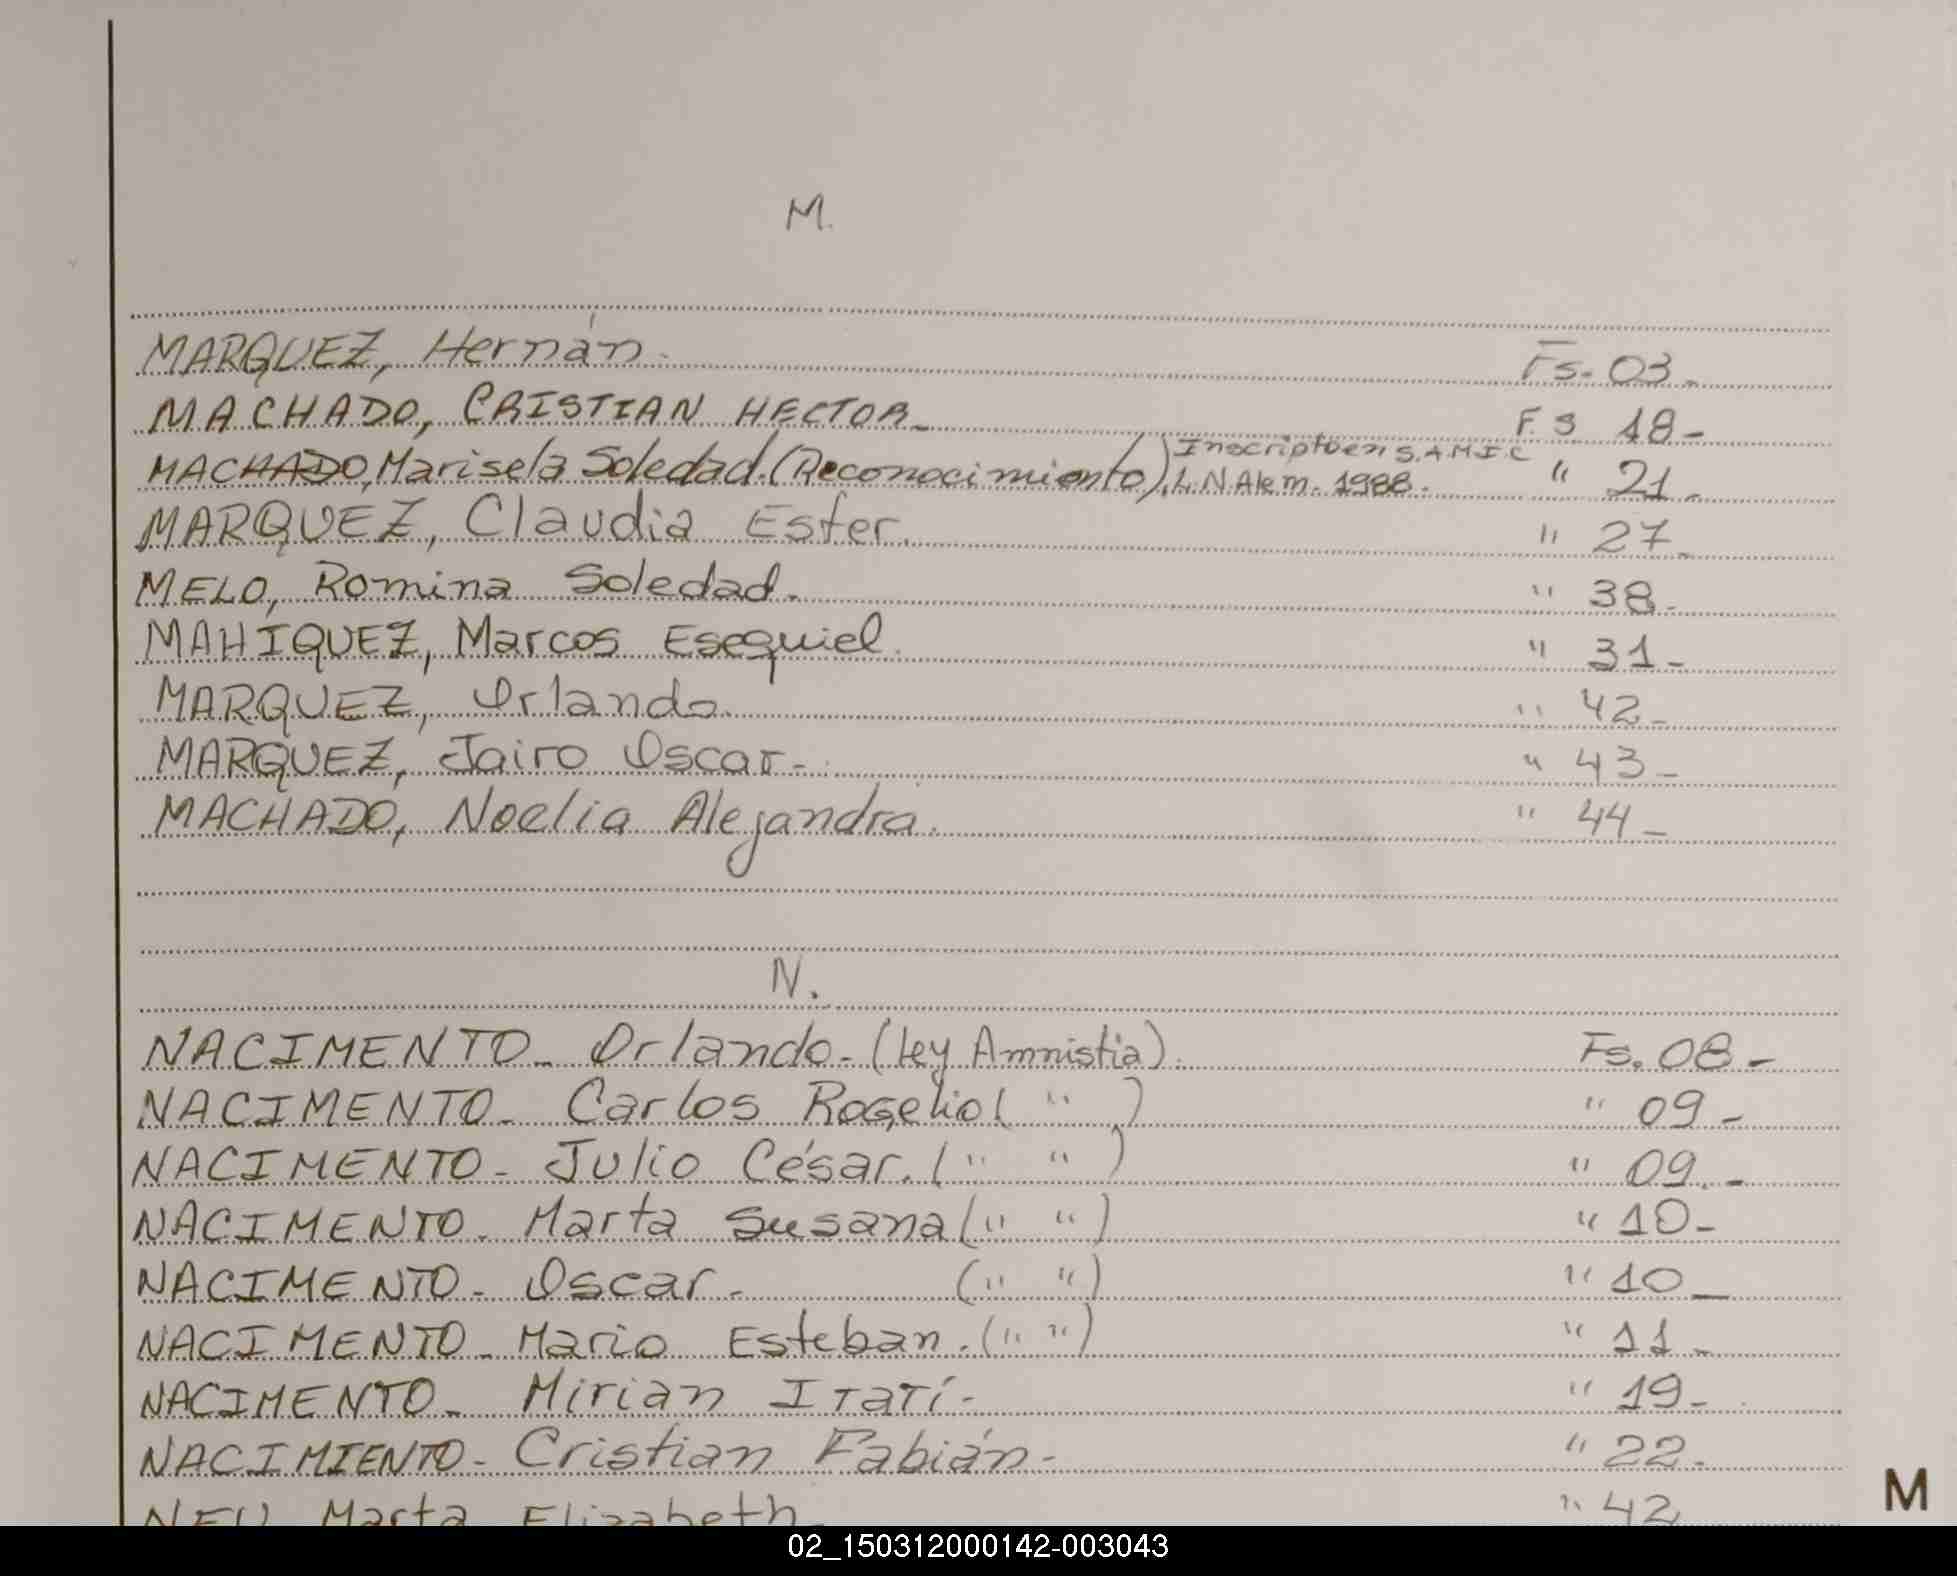 M.
MARQUEZ, Hernán. Fs. 03.
MACHADO, CRISTIAN HECTOR. F.S 18-
MACHADO, Marisela Soledad. (Reconocimiento) Inscripto en S.A.M.I.C " 21.
L.N Alem. 1988.
MARQUEZ, Claudia Ester. " 27.
MELO, Romina Soledad. " 38.
MAHIQUEZ, Marcos Esequiel. " 31-
MARQUEZ, Orlando. " 42-
MARQUEZ, Jairo Oscar-. " 43-
MACHADO, Noelia Alejandra. " 44-
N.
NACIMENTO- Orlando-(ley Amnistia). Fs. 08-
NACIMENTO- Carlos Rogelio( " ) " 09-
NACIMENTO- Julio César. ( " " ) " 09.-
NACIMENTO- Marta Susana ( " " ) " 10-
NACIMENTO- Oscar- ( " " ) " 10-
NACIMENTO- Mario Esteban. ( " " ) " 11-
NACIMENTO- Mirian Itatí- " 19-
NACIMIENTO- Cristian Fabián- " 22.
NEU Marta Elizabeth " 42
M
02_150312000142-003043